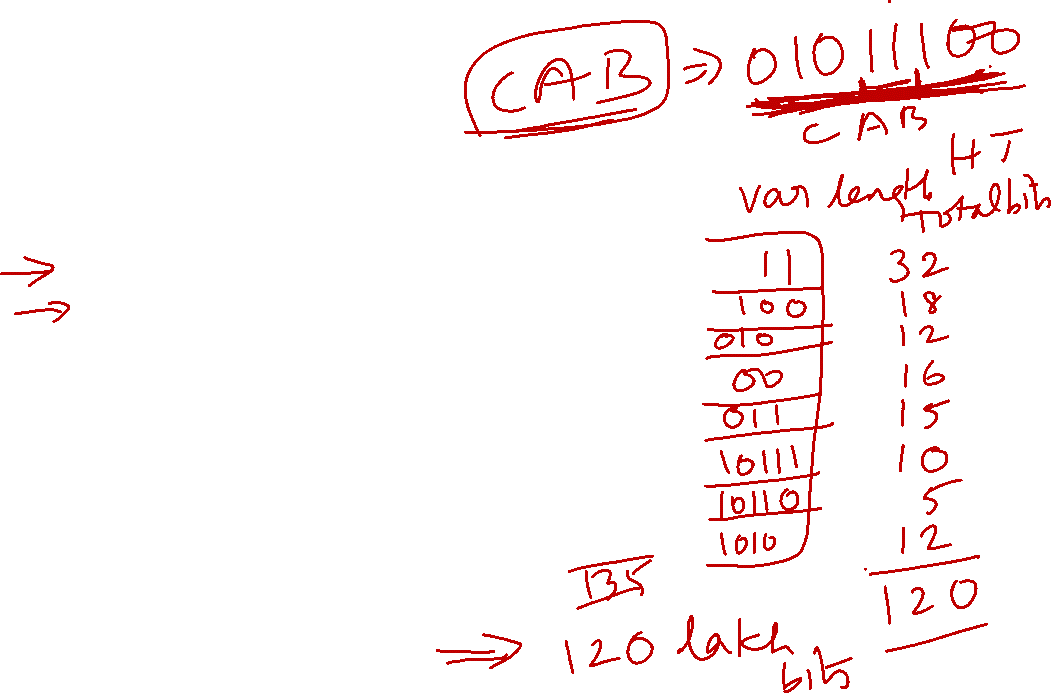 CAB ⇒ 01011100
C A B
HT
var length Total bits
11 32
100 18
010 12
00 16
011 15
10111 10
10110 5
1010 12
135 120
⇒ 120 lakh bits